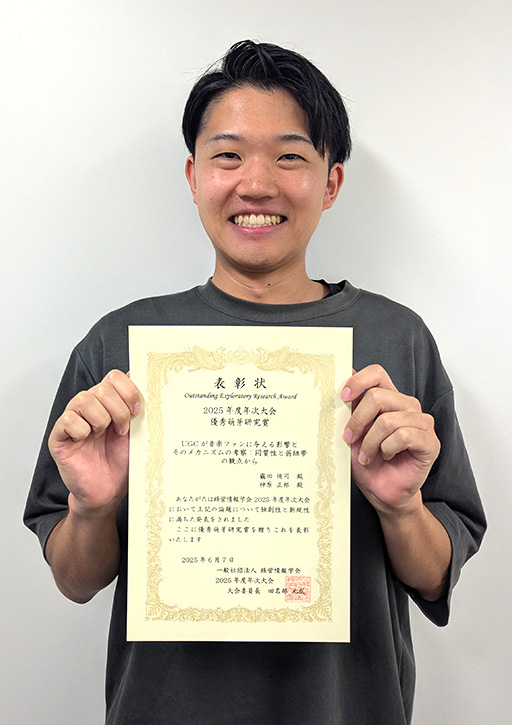 表彰状
Outstanding Exploratory Research Award
2025年度年次大会
優秀萌芽研究賞
UGCが音楽ファンに与える影響と
そのメカニズムの考察：同質性と弱紐帯
の観点から
殿
神原 正郎 殿
あなたがたは経営情報学会2025年度年次大会
において上記の論題について独創性と新規性
に満ちた発表をされました
ここに優秀萌芽研究賞を贈りこれを表彰
いたします
2025年6月7日
一般社団法人 経営情報学会
2025年度年次大会
大会委員長 田名部 元成